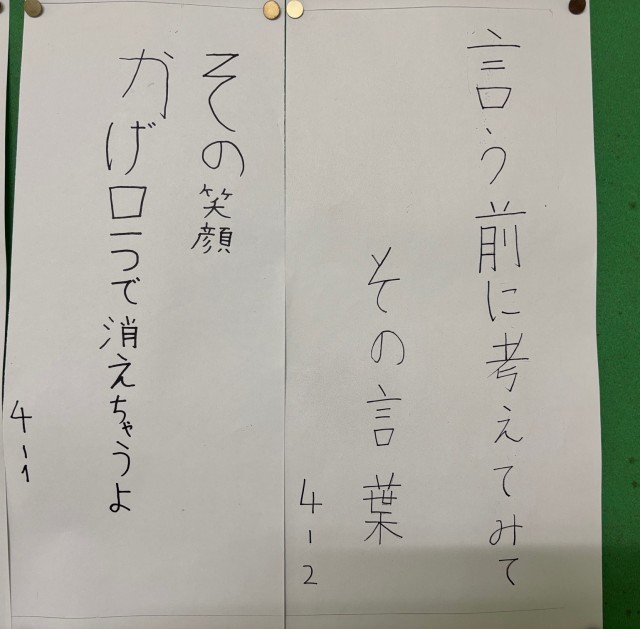 言う前に考えてみて
その言葉
4-2
その笑顔
かげ口一つで消えちゃうよ
4-1